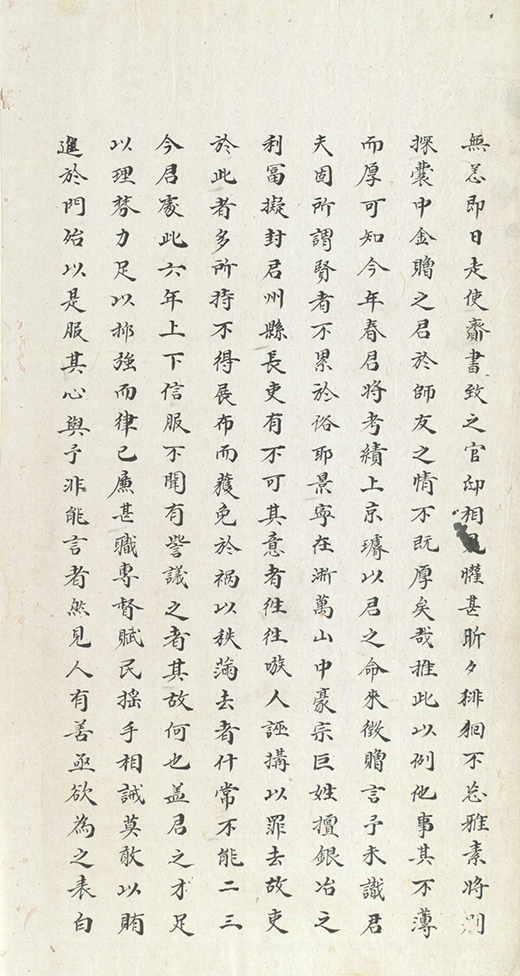 無恙即日走使齎書致之官邸相見懽甚昕夕徘徊不忘雅素將別
探囊中金贈之君於師友之情不既厚矣哉推此以例他事其不薄
而厚可知今年春君將考績上京璿以君之命來徵贈言予未識君
夫固所謂賢者不累於俗耶景寧在浙萬山中豪宗巨姓擅銀冶之
利冨擬封君州縣長吏有不可其意者往往嗾人誣搆以罪去故吏
於此者多所持不得展布而獲免於禍以秩滿去者什常不能二三
今君處此六年上下信服不聞有訾議之者其故何也盖君之才足
以理棼力足以抑強而律己廉甚職專督賦民搖手相誡莫敢以賄
進於門殆以是服其心與予非能言者然見人有善亟欲為之表白